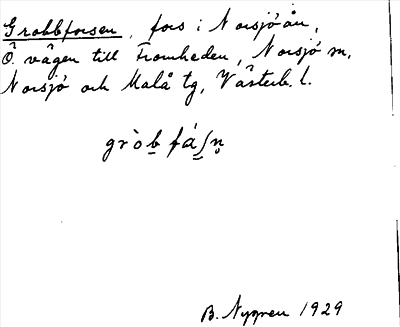 Grobbforsen, fors i Norsjöån,
Ö. vägen till Fromheden, Norsjö sn,
Norsjö och Malå tg, Västerb. l.
gròb fáʃn̥
B. Nygren 1929